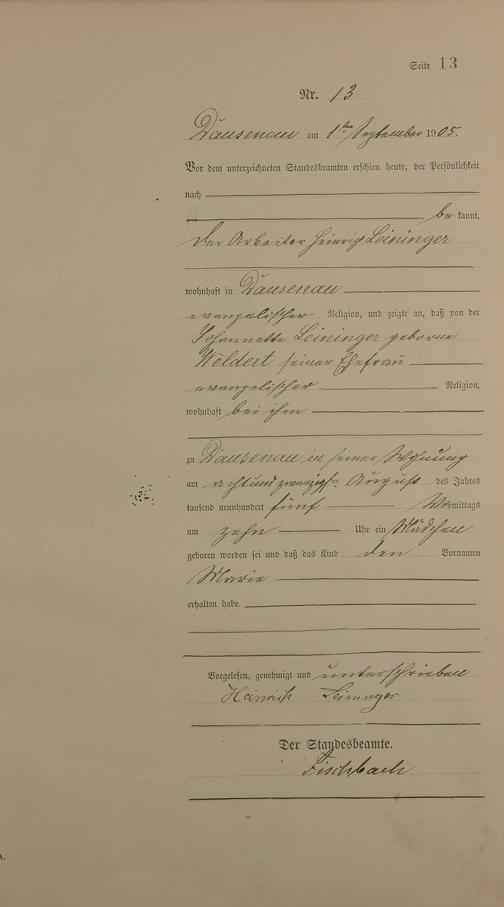 Seite 13
Nr. 13
Dausenau am 1ten September 1905.
Vor dem unterzeichneten Standesbeamten erschien heute, der Persönlichkeit
nach
be kannt,
der Arbeiter Heinrich Leininger
wohnhaft in Dausenau
evangelischer Religion, und zeigte an, daß von der
Johannette Leininger geborne
Weldert seiner Ehefrau
evangelischer Religion,
wohnhaft bei ihm
zu Dausenau in seiner Wohnung
am achtundzwanzigsten August des Jahres
tausend neunhundert fünf mittags
um zehn Uhr ein Mädchen
geboren worden sei und daß das Kind den Vornamen
Marie
erhalten habe.
Vorgelesen, genehmigt und unterschrieben
Heinrich Leininger
Der Standesbeamte.
Fischbach